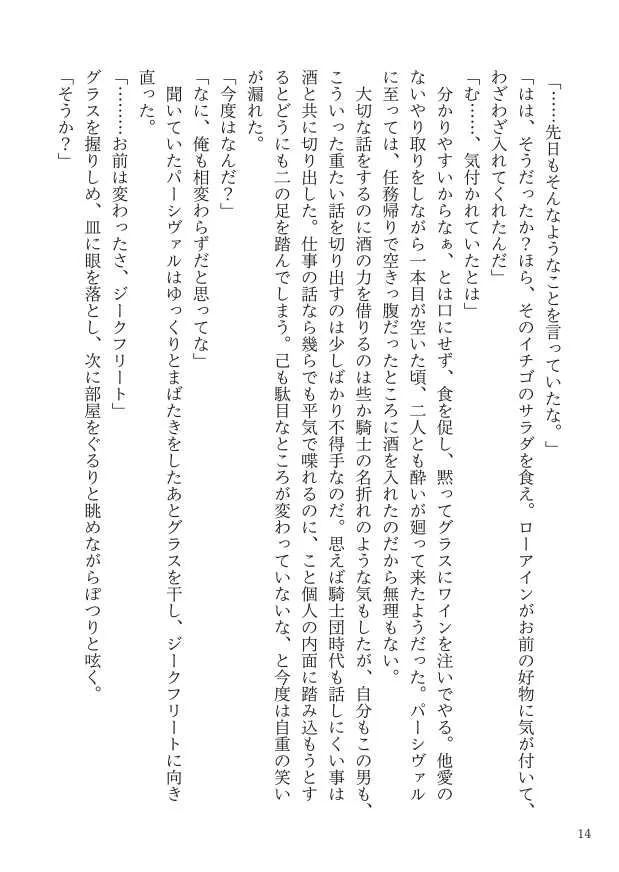 「……先日もそんなようなことを言っていたな。」
「はは、そうだったか？ほら、そのイチゴのサラダを食え。ローアインがお前の好物に気が付いて、
わざわざ入れてくれたんだ」
「む……、気付かれていたとは」
　分かりやすいからなぁ、とは口にせず、食を促し、黙ってグラスにワインを注いでやる。他愛の
ないやり取りをしながら一本目が空いた頃、二人とも酔いが廻って来たようだった。パーシヴァル
に至っては、任務帰りで空きっ腹だったところに酒を入れたのだから無理もない。
　大切な話をするのに酒の力を借りるのは些か騎士の名折れのような気もしたが、自分もこの男も、
こういった重たい話を切り出すのは少しばかり不得手なのだ。思えば騎士団時代も話しにくい事は
酒と共に切り出した。仕事の話なら幾らでも平気で喋れるのに、こと個人の内面に踏み込もうとす
るとどうにも二の足を踏んでしまう。己も駄目なところが変わっていないな、と今度は自重の笑い
が漏れた。
「今度はなんだ？」
「なに、俺も相変わらずだと思ってな」
　聞いていたパーシヴァルはゆっくりとまばたきをしたあとグラスを干し、ジークフリートに向き
直った。
「………お前は変わったさ、ジークフリート」
グラスを握りしめ、皿に眼を落とし、次に部屋をぐるりと眺めながらぽつりと呟く。
「そうか？」
14